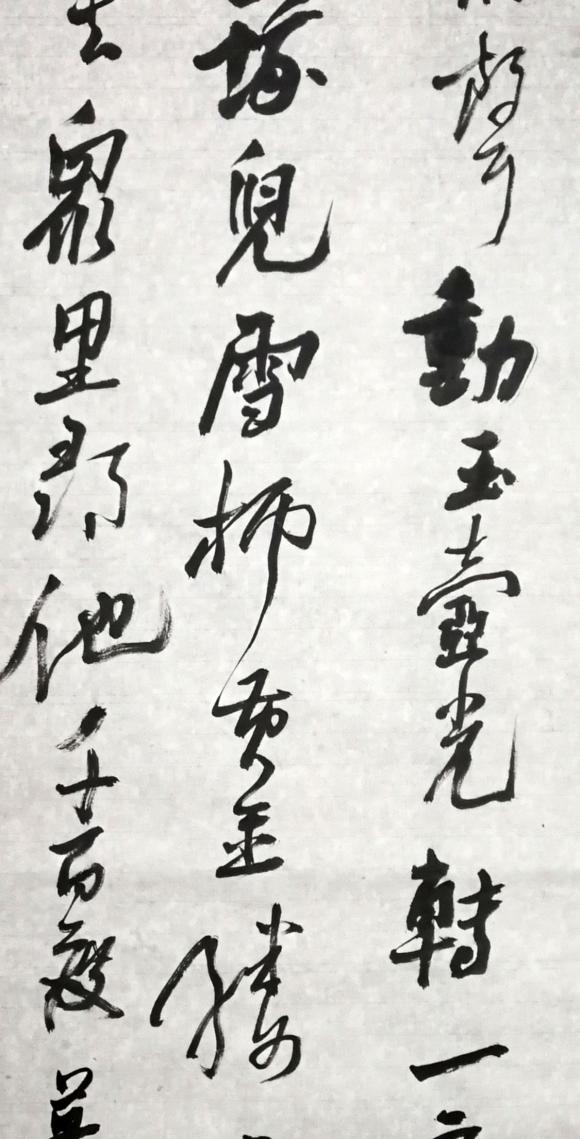 聲動玉壺光轉一
蛾兒雪柳黃金縷
去眾里尋他千百度